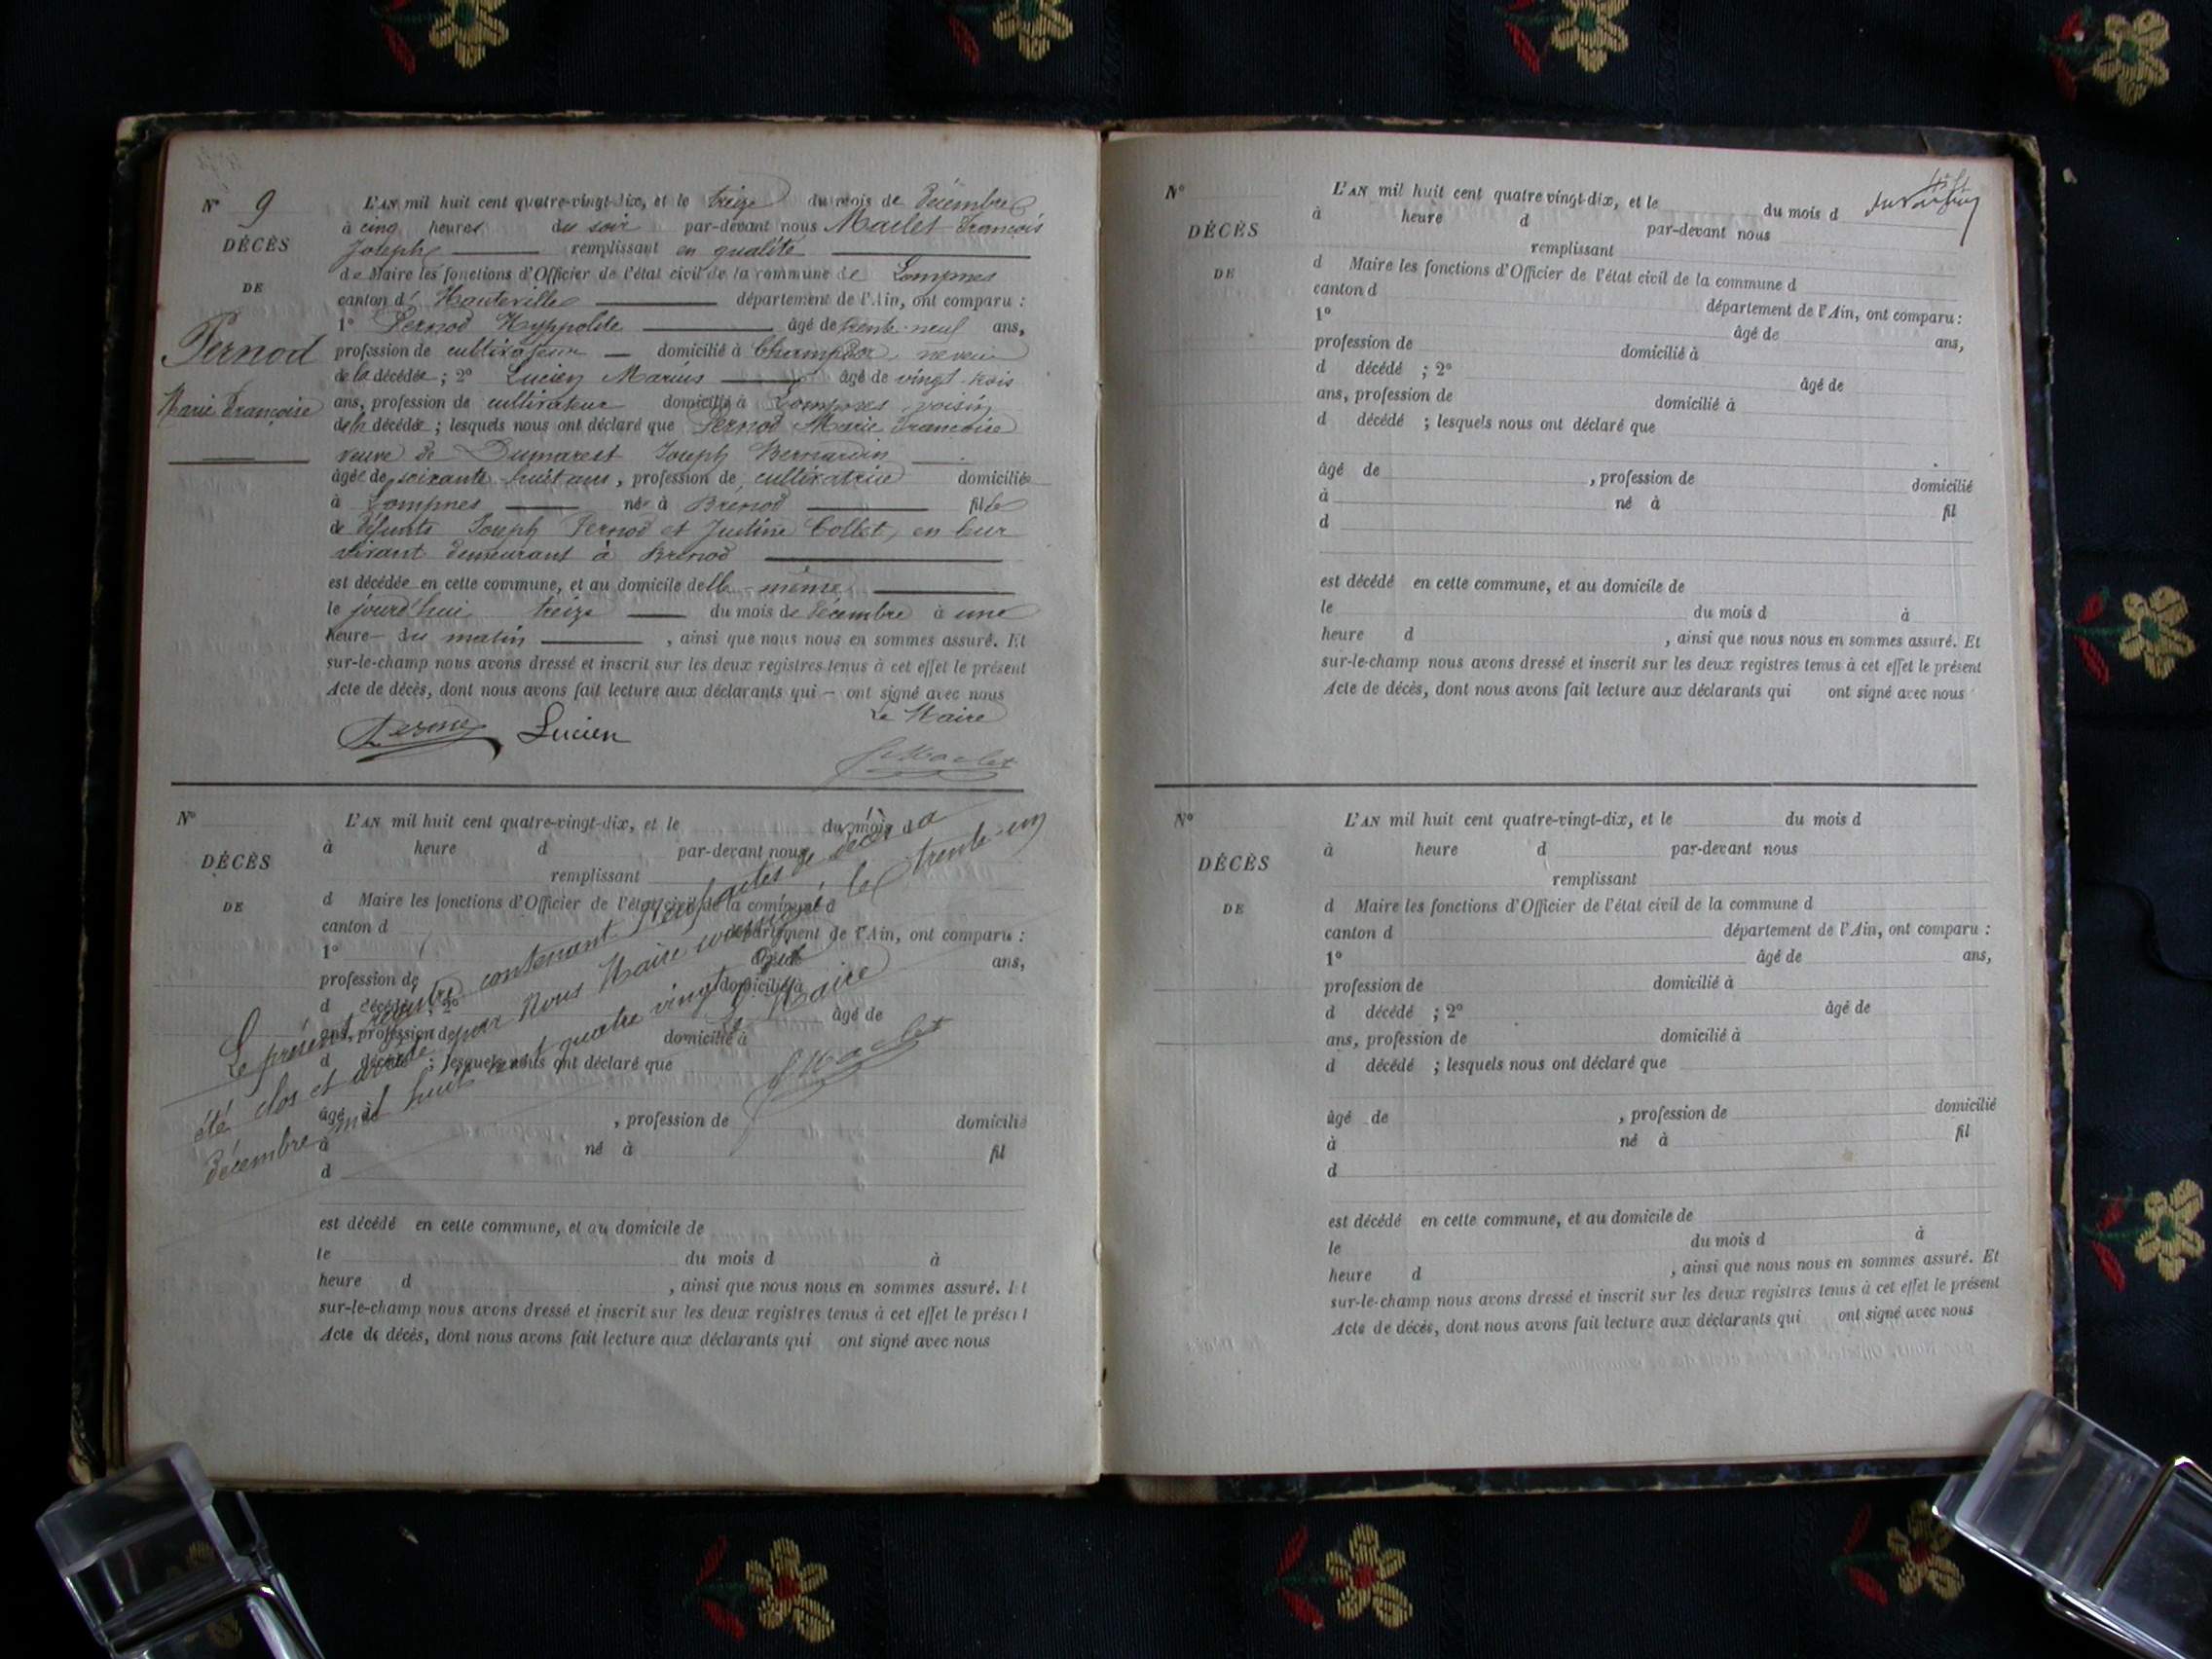 N° 9
DÉCÈS
DE
Pernod
Marie Françoise
L'AN mil huit cent quatre-vingt-dix, et le treize du mois de Décembre
à cinq heures du soir par-devant nous Maclet François
Joseph remplissant en qualité
de Maire les fonctions d'Officier de l'état civil de la commune de Lompnes
canton d' Hauteville département de l'Ain, ont comparu :
1° Pernod Hyppolite âgé de trente-neuf ans,
profession de cultivateur domicilié à Champdor, neveu
de la décédée ; 2° Lucien Marius âgé de vingt-trois
ans, profession de cultivateur domicilié à Lompnes, voisin
de la décédée ; lesquels nous ont déclaré que Pernod Marie Françoise
veuve de Dumarest Joseph Bernardin
âgée de soixante-huit ans, profession de cultivatrice domiciliée
à Lompnes née à Brénod fille
de défunts Joseph Pernod et Justine Collet, en leur
vivant demeurant à Brénod
est décédée en cette commune, et au domicile d'elle-même
le jourd'hui treize du mois de décembre à une
heure du matin, ainsi que nous nous en sommes assuré. Et
sur-le-champ nous avons dressé et inscrit sur les deux registres tenus à cet effet le présent
Acte de décès, dont nous avons fait lecture aux déclarants qui ont signé avec nous
Le Maire
Lucien
Maclet
N°
DÉCÈS
DE
L'AN mil huit cent quatre-vingt-dix, et le du mois d
à heure d par-devant nous
remplissant
d Maire les fonctions d'Officier de l'état civil de la commune d
canton d département de l'Ain, ont comparu :
1° âgé de ans,
profession de domicilié à
d décédé ; 2° âgé de
ans, profession de domicilié à
d décédé ; lesquels nous ont déclaré que
âgé de , profession de domicilié
à né à fil
d
est décédé en cette commune, et au domicile de
le du mois d à
heure d , ainsi que nous nous en sommes assuré. Et
sur-le-champ nous avons dressé et inscrit sur les deux registres tenus à cet effet le présent
Acte de décès, dont nous avons fait lecture aux déclarants qui ont signé avec nous
Le présent registre contenant neuf actes de décès a
été clos et arrêté par Nous Maire soussigné, le trente-un
décembre mil huit cent quatre vingt dix
Le Maire
Maclet
N°
DÉCÈS
DE
L'AN mil huit cent quatre-vingt-dix, et le du mois d
à heure d par-devant nous
remplissant
d Maire les fonctions d'Officier de l'état civil de la commune d
canton d département de l'Ain, ont comparu :
1° âgé de ans,
profession de domicilié à
d décédé ; 2° âgé de
ans, profession de domicilié à
d décédé ; lesquels nous ont déclaré que
âgé de , profession de domicilié
à né à fil
d
est décédé en cette commune, et au domicile de
le du mois d à
heure d , ainsi que nous nous en sommes assuré. Et
sur-le-champ nous avons dressé et inscrit sur les deux registres tenus à cet effet le présent
Acte de décès, dont nous avons fait lecture aux déclarants qui ont signé avec nous
N°
DÉCÈS
DE
L'AN mil huit cent quatre-vingt-dix, et le du mois d
à heure d par-devant nous
remplissant
d Maire les fonctions d'Officier de l'état civil de la commune d
canton d département de l'Ain, ont comparu :
1° âgé de ans,
profession de domicilié à
d décédé ; 2° âgé de
ans, profession de domicilié à
d décédé ; lesquels nous ont déclaré que
âgé de , profession de domicilié
à né à fil
d
est décédé en cette commune, et au domicile de
le du mois d à
heure d , ainsi que nous nous en sommes assuré. Et
sur-le-champ nous avons dressé et inscrit sur les deux registres tenus à cet effet le présent
Acte de décès, dont nous avons fait lecture aux déclarants qui ont signé avec nous